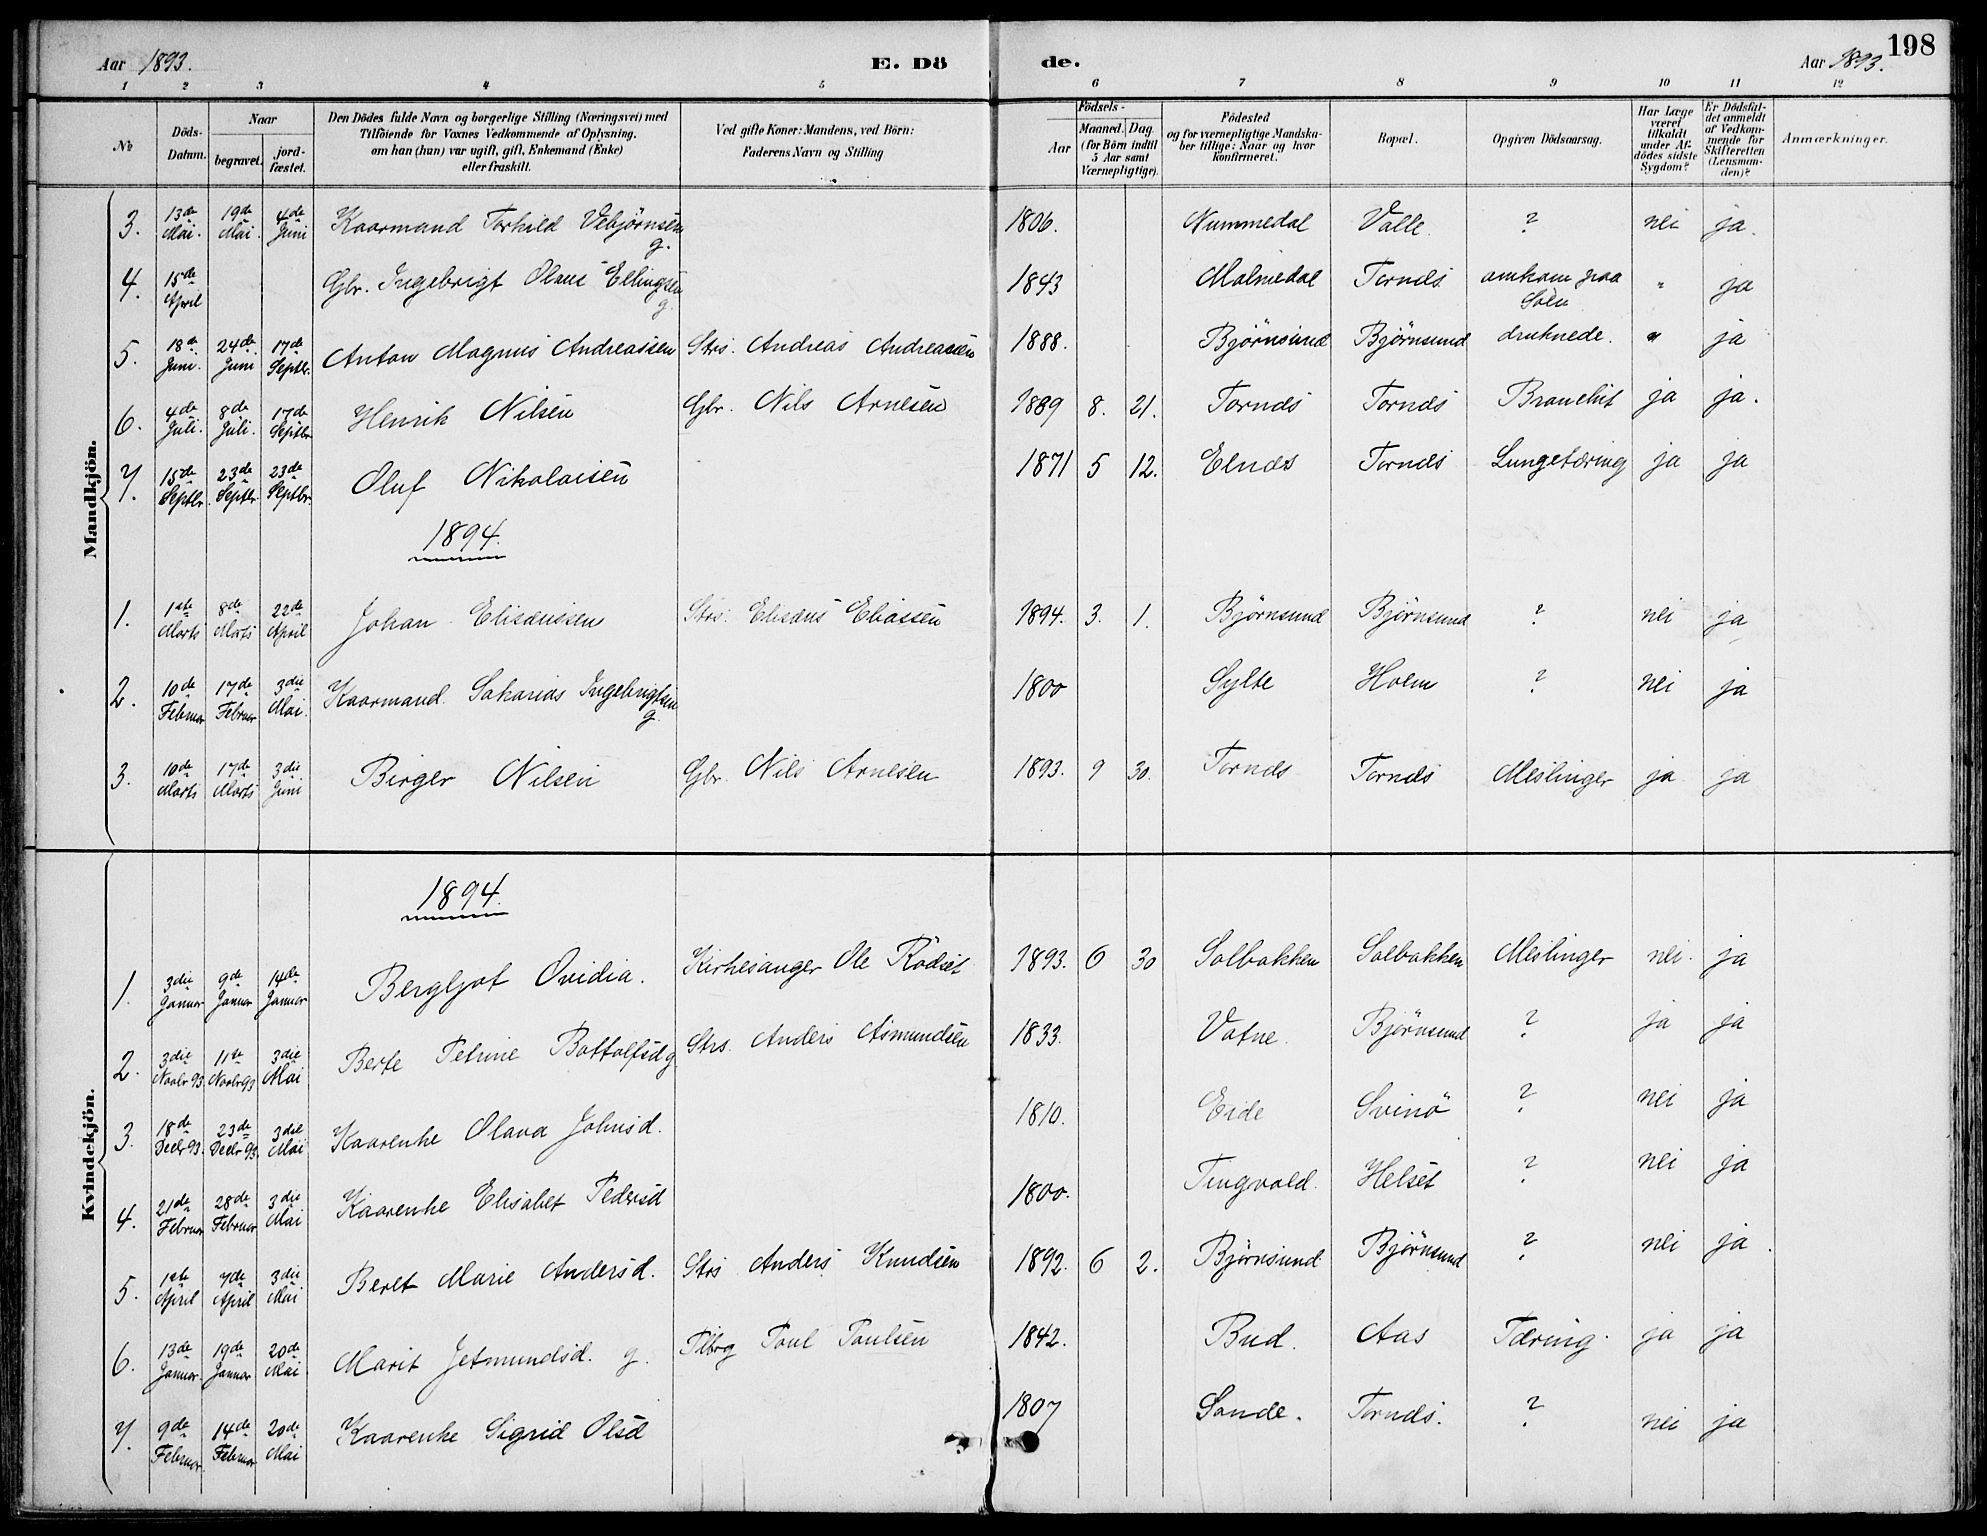 198
Aar 1893. E. Dö de. Aar 1893.
1 2 3 4 5 6 7 8 9 10 11 12
No
Döds-Datum.
Naar
begravet.
jord-fæstet.
Den Dödes fulde Navn og borgerlige Stilling (Næringsvei) med
Tilföiende for Voxnes Vedkommende af Oplysning,
om han (hun) var ugift, gift, Enkemand (Enke)
eller fraskilt.
Ved gifte Koner: Mandens, ved Börn:
Faderens Navn og Stilling
Födsels-
Aar
Maaned. Dag
(for Börn indtil
5 Aar samt
Værnepligtige).
Födested
og for værnepligtige Mandska-
ber tillige: Naar og hvor
konfirmeret.
Bopæl.
Opgiven Dödsaarsag.
Har Læge
været
tilkaldt
under Af-
dödes sidste
Sygdom?
Er Dödsfal-
det anmeldt
af Vedkom-
mende for
Skifteretten
(Lensman-
den)?
Anmærkninger.
Mandkjön.
3. 13de Mai. 19de Mai. 4de Juni Kaarmand Torhild Vebjørnsen g. 1806. Nummedal Valle. ? nei ja.
4. 15de April Gbr. Ingebrigt Olaus Ellingsen g. 1843 Malmedal Tornæs omkom paa Söen " ja
5. 18de Juni. 24de Juni 17de Septbr. Anton Magnus Andreassen Strs. Andreas Andreassen 1888. Bjørnsund Bjørnsund druknede. " ja
6. 4de Juli. 8de Juli. 17de Septbr Henrik Nilsen Gbr. Nils Arnesen 1889 8. 21. Tornæs Tornæs Bronchit ja ja.
7. 15de Septbr. 23de Septbr. 23de Septbr. Oluf Nikolaisen 1871 5 12. Elnæs Tornæs Lungetæring ja ja
1894.
1. 1ste Marts 8de Marts 22de April Johan Elisæussen Strs. Elisæus Eliassen 1894. 3. 1. Bjørnsund Bjørnsund ? nei ja
2. 10de Februar 17de Februar 3die Mai. Kaarmand. Sakarias Ingebrigtsen g. 1800 Sylte Holm ? nei ja
3. 10de Marts 17de Marts 3die Juni Birger Nilsen Gbr. Nils Arnesen 1893. 9 30. Tornæs Tornæs Meslinger ja ja
Kvindekjön.
1894.
1. 3die Januar 9de Januar 14de Januar Bergljot Ovidia. Kirkesanger Ole Rödset 1893. 6 30 Solbakken Solbakken Meslinger nei. ja
2. 3die Novbr 93. 11te Novbr 93 3die Mai Berte Petrine Bottolfsd g Strs. Anders Asmundsen 1833. Vatne. Bjørnsund ? ja ja
3. 18de Decbr 93. 23de Decbr 93. 3die Mai Kaarenke Olava Johnsd. 1810. Eide Svinö ? nei ja
4. 21de Februar 28de Februar 3die Mai Kaarenke Elisabet Pedersd 1800. Tingvold. Helset ? nei ja
5. 1ste April 7de April 3die Mai Beret Marie Andersd. Strs Anders Knudsen 1892. 6 2. Bjørnsund Bjørnsund ? nei ja.
6. 13de Januar. 19de Januar 20de Mai. Marit Jetmundsd. g. Paul Paulsen 1842. Bud. Aas Tæring. ja ja
7. 9de Februar. 14de Februar 20de Mai Kaarenke Sigrid Olsd 1807 Sande. Tornæs. ? nei ja